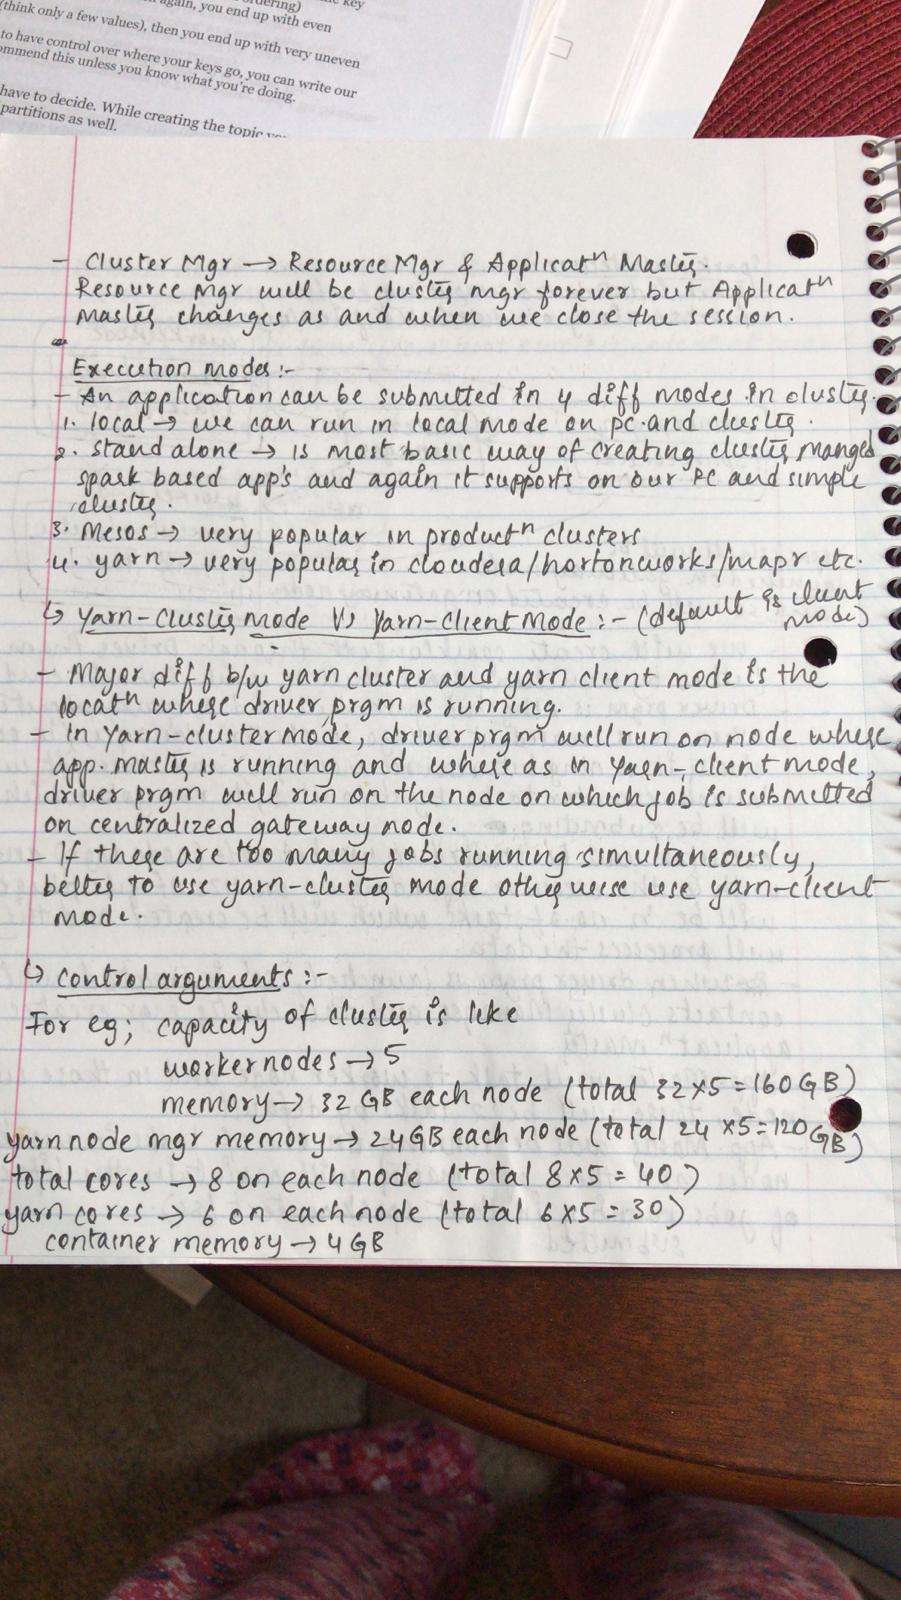 again, you end up with even
(think only a few values), then you end up with very uneven
to have control over where your keys go, you can write our
ommend this unless you know what you're doing.
have to decide. While creating the topic
partitions as well.
- Cluster Mgr → Resource Mgr & Applicatn Master.
Resource Mgr will be cluster mgr forever but Applicatn
Master changes as and when we close the session.
Execution modes :-
- An application can be submitted in 4 diff modes in cluster.
1. local → we can run in local mode on pc and cluster.
2. stand alone → is most basic way of creating cluster manged
spark based app's and again it supports on our PC and simple
cluster.
3. Mesos → very popular in productn clusters
4. yarn → very popular in cloudera/hortonworks/mapr etc.
↳ Yarn-Cluster mode Vs Yarn-Client Mode :- (default is client
mode)
- Major diff b/w yarn cluster and yarn client mode is the
locatn where driver prgm is running.
- In Yarn-cluster mode, driver prgm will run on node where
app. master is running and where as in Yarn-client mode,
driver prgm will run on the node on which job is submitted
on centralized gateway node.
- If there are too many jobs running simultaneously,
better to use yarn-cluster mode otherwise use yarn-client
mode.
↳ control arguments :-
For eg; capacity of cluster is like
worker nodes → 5
memory → 32 GB each node (total 32×5=160GB)
yarn node mgr memory → 24GB each node (total 24×5=120GB)
total cores → 8 on each node (total 8×5=40)
yarn cores → 6 on each node (total 6×5=30)
container memory → 4GB